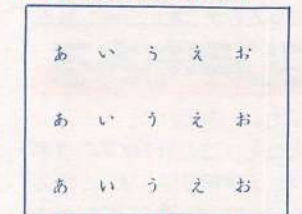 あ い う え お
あ い う え お
あ い う え お